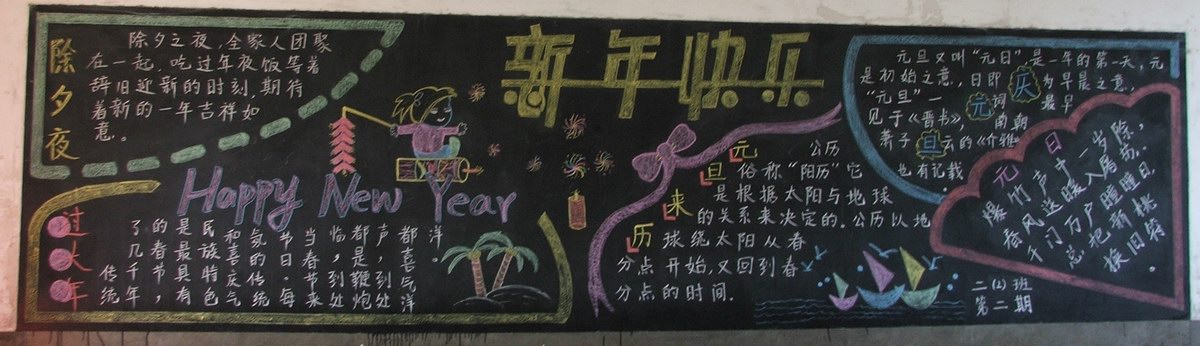 新年快乐
除夕夜
除夕之夜,全家人团聚
在一起,吃过年夜饭等着
辞旧迎新的时刻,期待
着新的一年吉祥如
意。
Happy New Year
过大年
传统
了几千年
的春节,
是最具有
民族特色
和喜庆气
氛的传统
节日。每
当春节来
临,到处
都是鞭炮
声,到处
都喜气洋
洋。
元旦来历
公历
俗称“阳历”它
是根据太阳与地球
的关系来决定的.公历以地
球绕太阳从春
分点开始,又回到春
分点的时间.
庆元旦
元旦又叫“元日”,是一年的第一天,元
是初始之意,日即为早晨之意,
“元旦”一词最早
见于《晋书》,南朝
萧子云的《介雅
也有记载.
元日
爆竹声中一岁除,
春风送暖入屠苏.
千门万户曈曈日
总把新桃
换旧符.
二(2)班
第二期